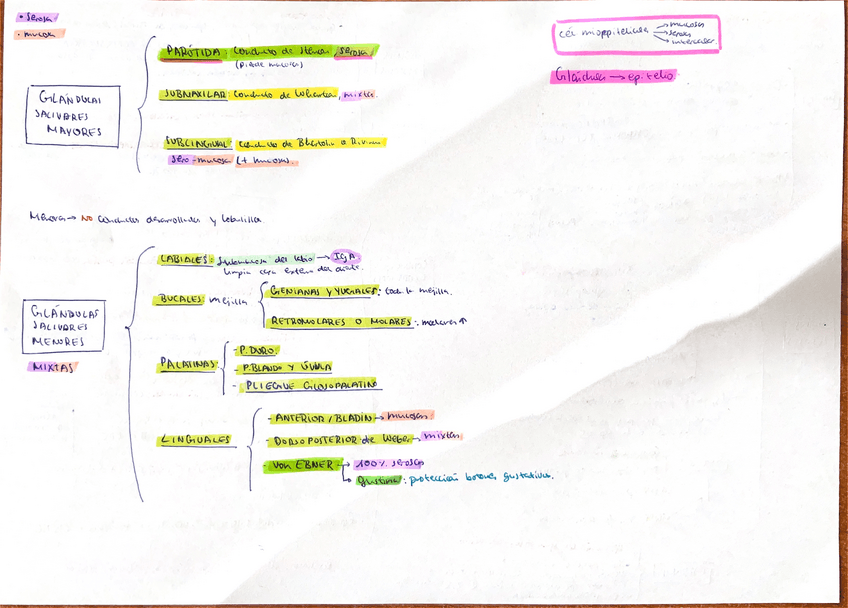 • serosa
• mucosa
GLÁNDULAS
SALIVARES
MAYORES
PARÓTIDA: conducto de Stenon, serosa
SUBMAXILAR: conducto de Wharton, mixta.
SUBLINGUAL: conducto de Bartolin o Rivinus
sero-mucosa (+ mucosa).
cél mioepiteliales → mucosas
→ serosas
→ intercalar
Glándulas → epitelio
Menores → NO conductos desarrollados y
LABIALES: submucosa del labio → IgA
limpia cara externa del diente.
GLÁNDULAS
SALIVARES
MENORES
MIXTAS
BUCALES: mejilla
GENIANAS Y YUGALES: toda la mejilla.
RETROMOLARES O MOLARES: molares ↑
PALATINAS
- P. DURO
- P. BLANDO Y ÚVULA
- PLIEGUE GLOSOPALATINO
LINGUALES
- ANTERIOR / BLADIN → mucosas
- DORSO POSTERIOR de Weber → mixtas
- Von EBNER → 100% serosas
→ gustina: protección botones gustativos.